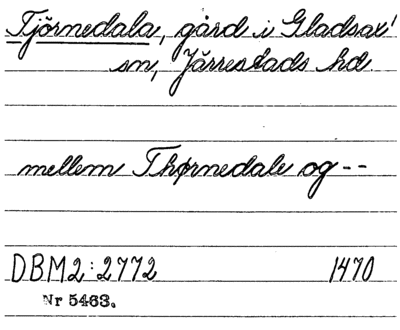 Tjörnedala, gård i Gladsax'
sn, Järrestads hd.
mellem Thørnedale og --
DBM2:2772 1470
Nr 5463.